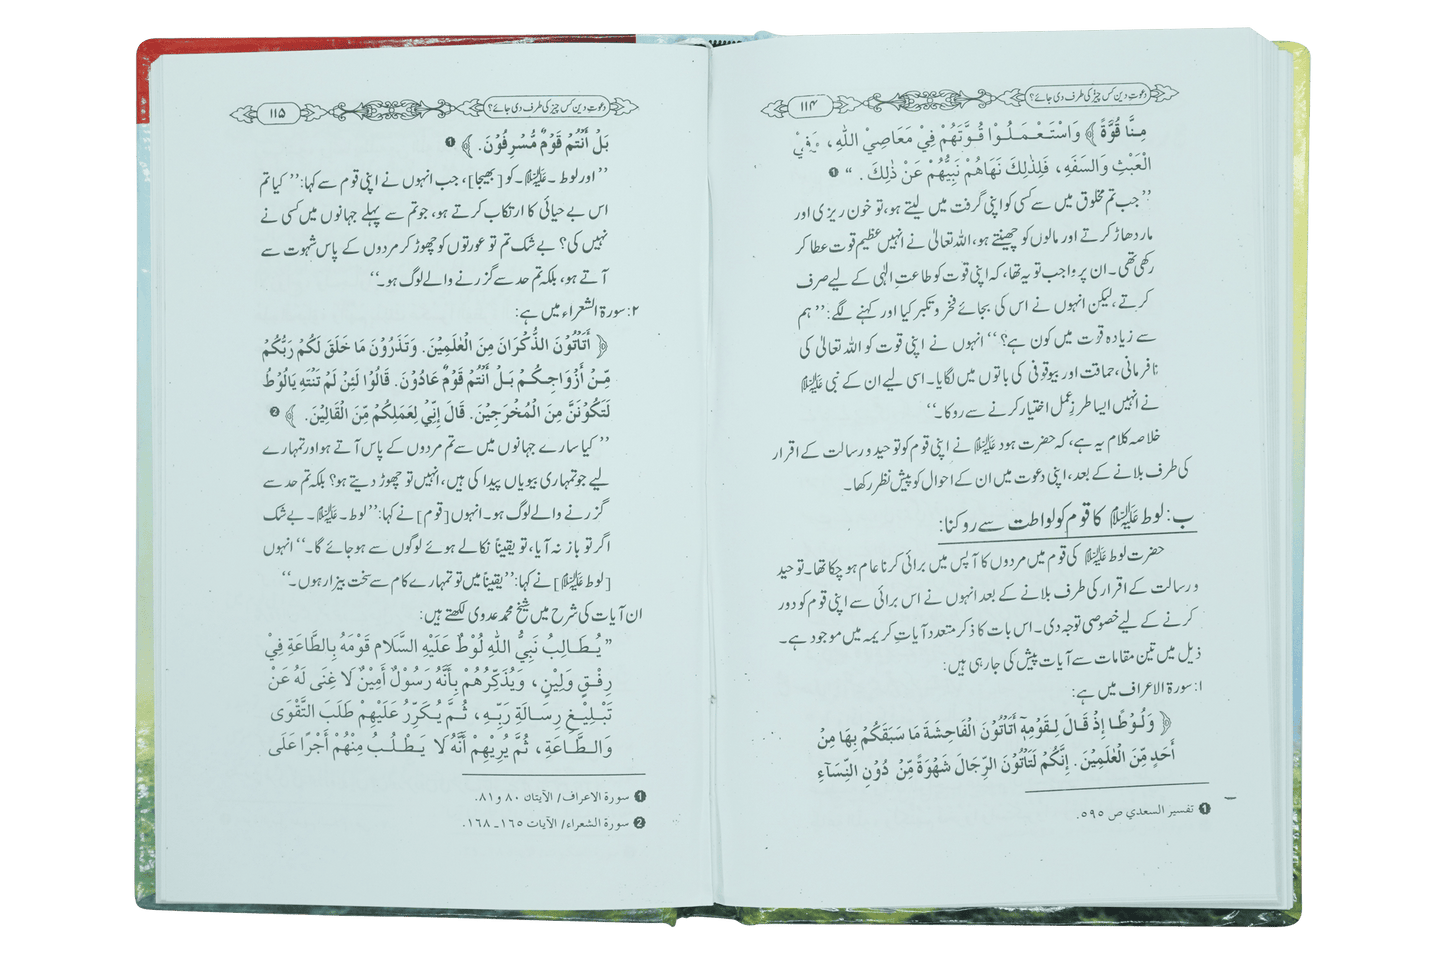 دعوتِ دین کس چیز کی طرف دی جائے؟
۱۱۴
مِنَّا قُوَّةً﴾ وَاسْتَعْمَلُوْا قُوَّتَهُمْ فِيْ مَعَاصِيْ اللهِ، وَفِيْ
الْعَبْثِ وَالسَّفَهِ، فَلِذٰلِكَ نَهَاهُمْ نَبِيُّهُمْ عَنْ ذٰلِكَ. “ ❶
’’جب تم مخلوق میں سے کسی کو اپنی گرفت میں لیتے ہو، تو خون ریزی اور
مار دھاڑ کرتے اور مالوں کو چھینتے ہو، اللہ تعالیٰ نے انہیں عظیم قوت عطا کر
رکھی تھی۔ ان پر واجب تو یہ تھا، کہ اپنی قوت کو طاعتِ الٰہی کے لیے صرف
کرتے، لیکن انہوں نے اس کی بجائے فخر و تکبر کیا اور کہنے لگے: ’’ہم
سے زیادہ قوت میں کون ہے؟‘‘ انہوں نے اپنی قوت کو اللہ تعالیٰ کی
نافرمانی، حماقت اور بیوقوفی کی باتوں میں لگایا۔ اسی لیے ان کے نبی علیہ السلام
نے انہیں ایسا طرزِ عمل اختیار کرنے سے روکا۔‘‘
خلاصہ کلام یہ ہے، کہ حضرت ہود علیہ السلام نے اپنی قوم کو توحید و رسالت کے اقرار
کی طرف بلانے کے بعد، اپنی دعوت میں ان کے احوال کو پیش نظر رکھا۔
ب: لوط علیہ السلام کا قوم کو لواطت سے روکنا:
حضرت لوط علیہ السلام کی قوم میں مردوں کا آپس میں برائی کرنا عام ہو چکا تھا۔ توحید
و رسالت کے اقرار کی طرف بلانے کے بعد انہوں نے اس برائی سے اپنی قوم کو دور
کرنے کے لیے خصوصی توجہ دی۔ اس بات کا ذکر متعدد آیاتِ کریمہ میں موجود ہے۔
ذیل میں تین مقامات سے آیات پیش کی جا رہی ہیں:
۱: سورۃ الاعراف میں ہے:
﴿وَلُوْطًا إِذْ قَالَ لِقَوْمِهٖٓ أَتَأْتُوْنَ الْفَاحِشَةَ مَا سَبَقَكُمْ بِهَا مِنْ
أَحَدٍ مِّنَ الْعٰلَمِيْنَ. إِنَّكُمْ لَتَأْتُوْنَ الرِّجَالَ شَهْوَةً مِّنْ دُوْنِ النِّسَآءِ
❶ تفسير السعدي ص ٥٩٥.
دعوتِ دین کس چیز کی طرف دی جائے؟
۱۱۵
بَلْ أَنْتُمْ قَوْمٌ مُّسْرِفُوْنَ.﴾ ❶
’’اور لوط ۔علیہ السلام۔ کو [بھیجا]، جب انہوں نے اپنی قوم سے کہا: ’’کیا تم
اس بے حیائی کا ارتکاب کرتے ہو، جو تم سے پہلے جہانوں میں کسی نے
نہیں کی؟ بے شک تم تو عورتوں کو چھوڑ کر مردوں کے پاس شہوت سے
آتے ہو، بلکہ تم حد سے گزرنے والے لوگ ہو۔‘‘
۲: سورۃ الشعراء میں ہے:
﴿أَتَأْتُوْنَ الذُّكْرَانَ مِنَ الْعٰلَمِيْنَ. وَتَذَرُوْنَ مَا خَلَقَ لَكُمْ رَبُّكُمْ
مِّنْ أَزْوَاجِكُمْ بَلْ أَنْتُمْ قَوْمٌ عَادُوْنَ. قَالُوْا لَئِنْ لَّمْ تَنْتَهِ يٰلُوْطُ
لَتَكُوْنَنَّ مِنَ الْمُخْرَجِيْنَ. قَالَ إِنِّيْ لِعَمَلِكُمْ مِّنَ الْقَالِيْنَ.﴾ ❷
’’کیا سارے جہانوں میں سے تم مردوں کے پاس آتے ہو اور تمہارے
لیے جو تمہاری بیویاں پیدا کی ہیں، انہیں تو چھوڑ دیتے ہو؟ بلکہ تم حد سے
گزرنے والے لوگ ہو۔ انہوں [قوم] نے کہا: ’’لوط ۔علیہ السلام۔ بے شک
اگر تو باز نہ آیا، تو یقیناً نکالے ہوئے لوگوں سے ہو جائے گا۔‘‘ انہوں
[لوط علیہ السلام] نے کہا: ’’یقیناً میں تو تمہارے کام سے سخت بیزار ہوں۔‘‘
ان آیات کی شرح میں شیخ محمد عدوی لکھتے ہیں:
”يُطَالِبُ نَبِيُّ اللهِ لُوْطٌ عَلَيْهِ السَّلَام قَوْمَهُ بِالطَّاعَةِ فِيْ
رِفْقٍ وَلِيْنٍ، وَيُذَكِّرُهُمْ بِأَنَّهُ رَسُوْلٌ أَمِيْنٌ لَا غِنَى لَهُ عَنْ
تَبْلِيْغِ رِسَالَةِ رَبِّهِ، ثُمَّ يُكَرِّرُ عَلَيْهِمْ طَلَبَ التَّقْوَى
وَالطَّاعَةِ، ثُمَّ يُرِيْهِمْ أَنَّهُ لَا يَطْلُبُ مِنْهُمْ أَجْرًا عَلَى
❶ سورة الاعراف/ الآيتان ٨٠ و٨١.
❷ سورة الشعراء/ الآيات ١٦٥۔١٦٨.